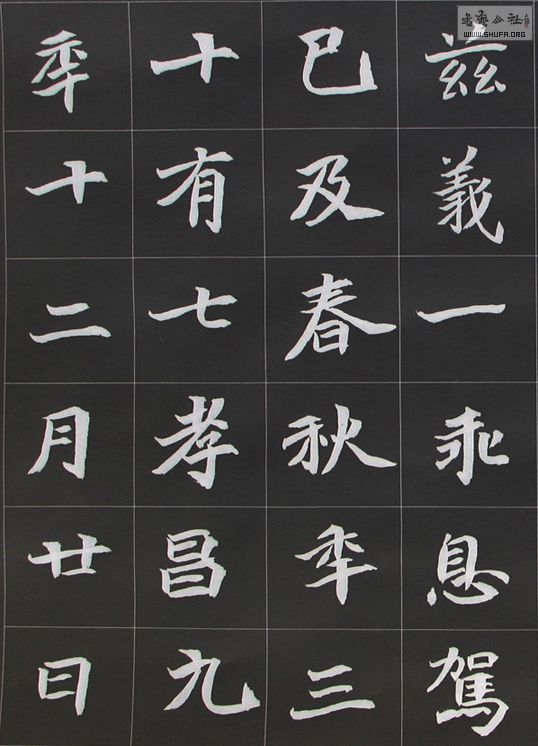 茲義一乖息駕
已及春秋秊三
十有七孝昌九
秊十二月廿日
書藝公社
WWW.SHUFA.ORG